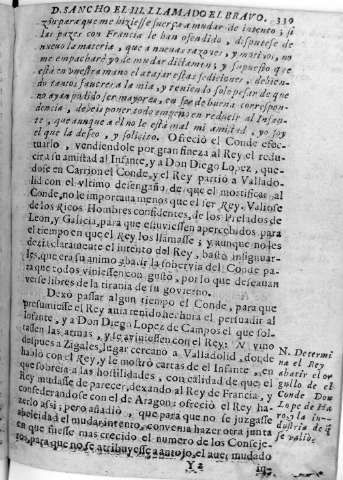 D. SANCHO EL III. LLAMADO EL BRAVO. 339
zo, para que me hiziesse fuerça a mudar de intento; si
las pazes con Francia le han ofendido, disputese de
nuevo la materia, que a nuevas razones, y motivos, no
me empacharè yo de mudar dictamen; y supuesto que
està en vuestra mano el atajar estas sediciones, debien-
do tantos favores a la mia, y teniendo solo pesar de que
no ayan podido ser mayores, en fee de buena correspon-
dencia, debeis poner todo empeño en reducir al Infan-
te, que aunque a èl no le està mal mi amistad, yo soy
el que la deseo, y solicito. Ofreciò el Conde efec-
tuarlo, vendiendole por gran fineza al Rey, el redu-
cir a su amistad al Infante, y a Don Diego Lopez, que-
dose en Carrion el Conde, y el Rey partiò a Vallado-
lid con el vltimo desengaño, de que el mortificar al
Conde, no le importaua menos que el ser Rey. Valiose
de los Ricos Hombres confidentes, de los Prelados de
Leon, y Galicia, para que estuviessen apercebidos para
el tiempo en que el Rey los llamasse; y aunque no les
dezia claramente el intento del Rey, bastò insinuar-
les, que era su animo abatir la sobervia del Conde pa-
ra que todos viniessen con gusto, por lo que deseauan
verse libres de la tirania de su govierno.
Dexò passar algun tiempo el Conde, para que
presumiesse el Rey auia tenido hechura el persuadir al
Infante, y a Don Diego Lopez de Campos el que sol-
tassen las armas, y se aviniessen con el Rey: vino
despues a Zigales, lugar cercano a Valladolid, donde
hablò con el Rey, y le mostrò cartas de el Infante, en
que sobreìa a las hostilidades, con calidad de que el
Rey mudasse de parecer, dexando al Rey de Francia, y
consederandose con el de Aragon: ofreciò el Rey ha-
zerlo assi; pero añadiò, que para que no se juzgasse
el mudar intento, convenia hazer otra junta
en que fuesse mas crecido el numero de los Conseje-
ros, para que no se atribuyesse a antojo, el auer mudado
Y 2
N. Determi
na el Rey
abatir el or
gullo de el
Conde Don
Lope de Ha
ro, y la in-
dustria de q̃
se valiò.